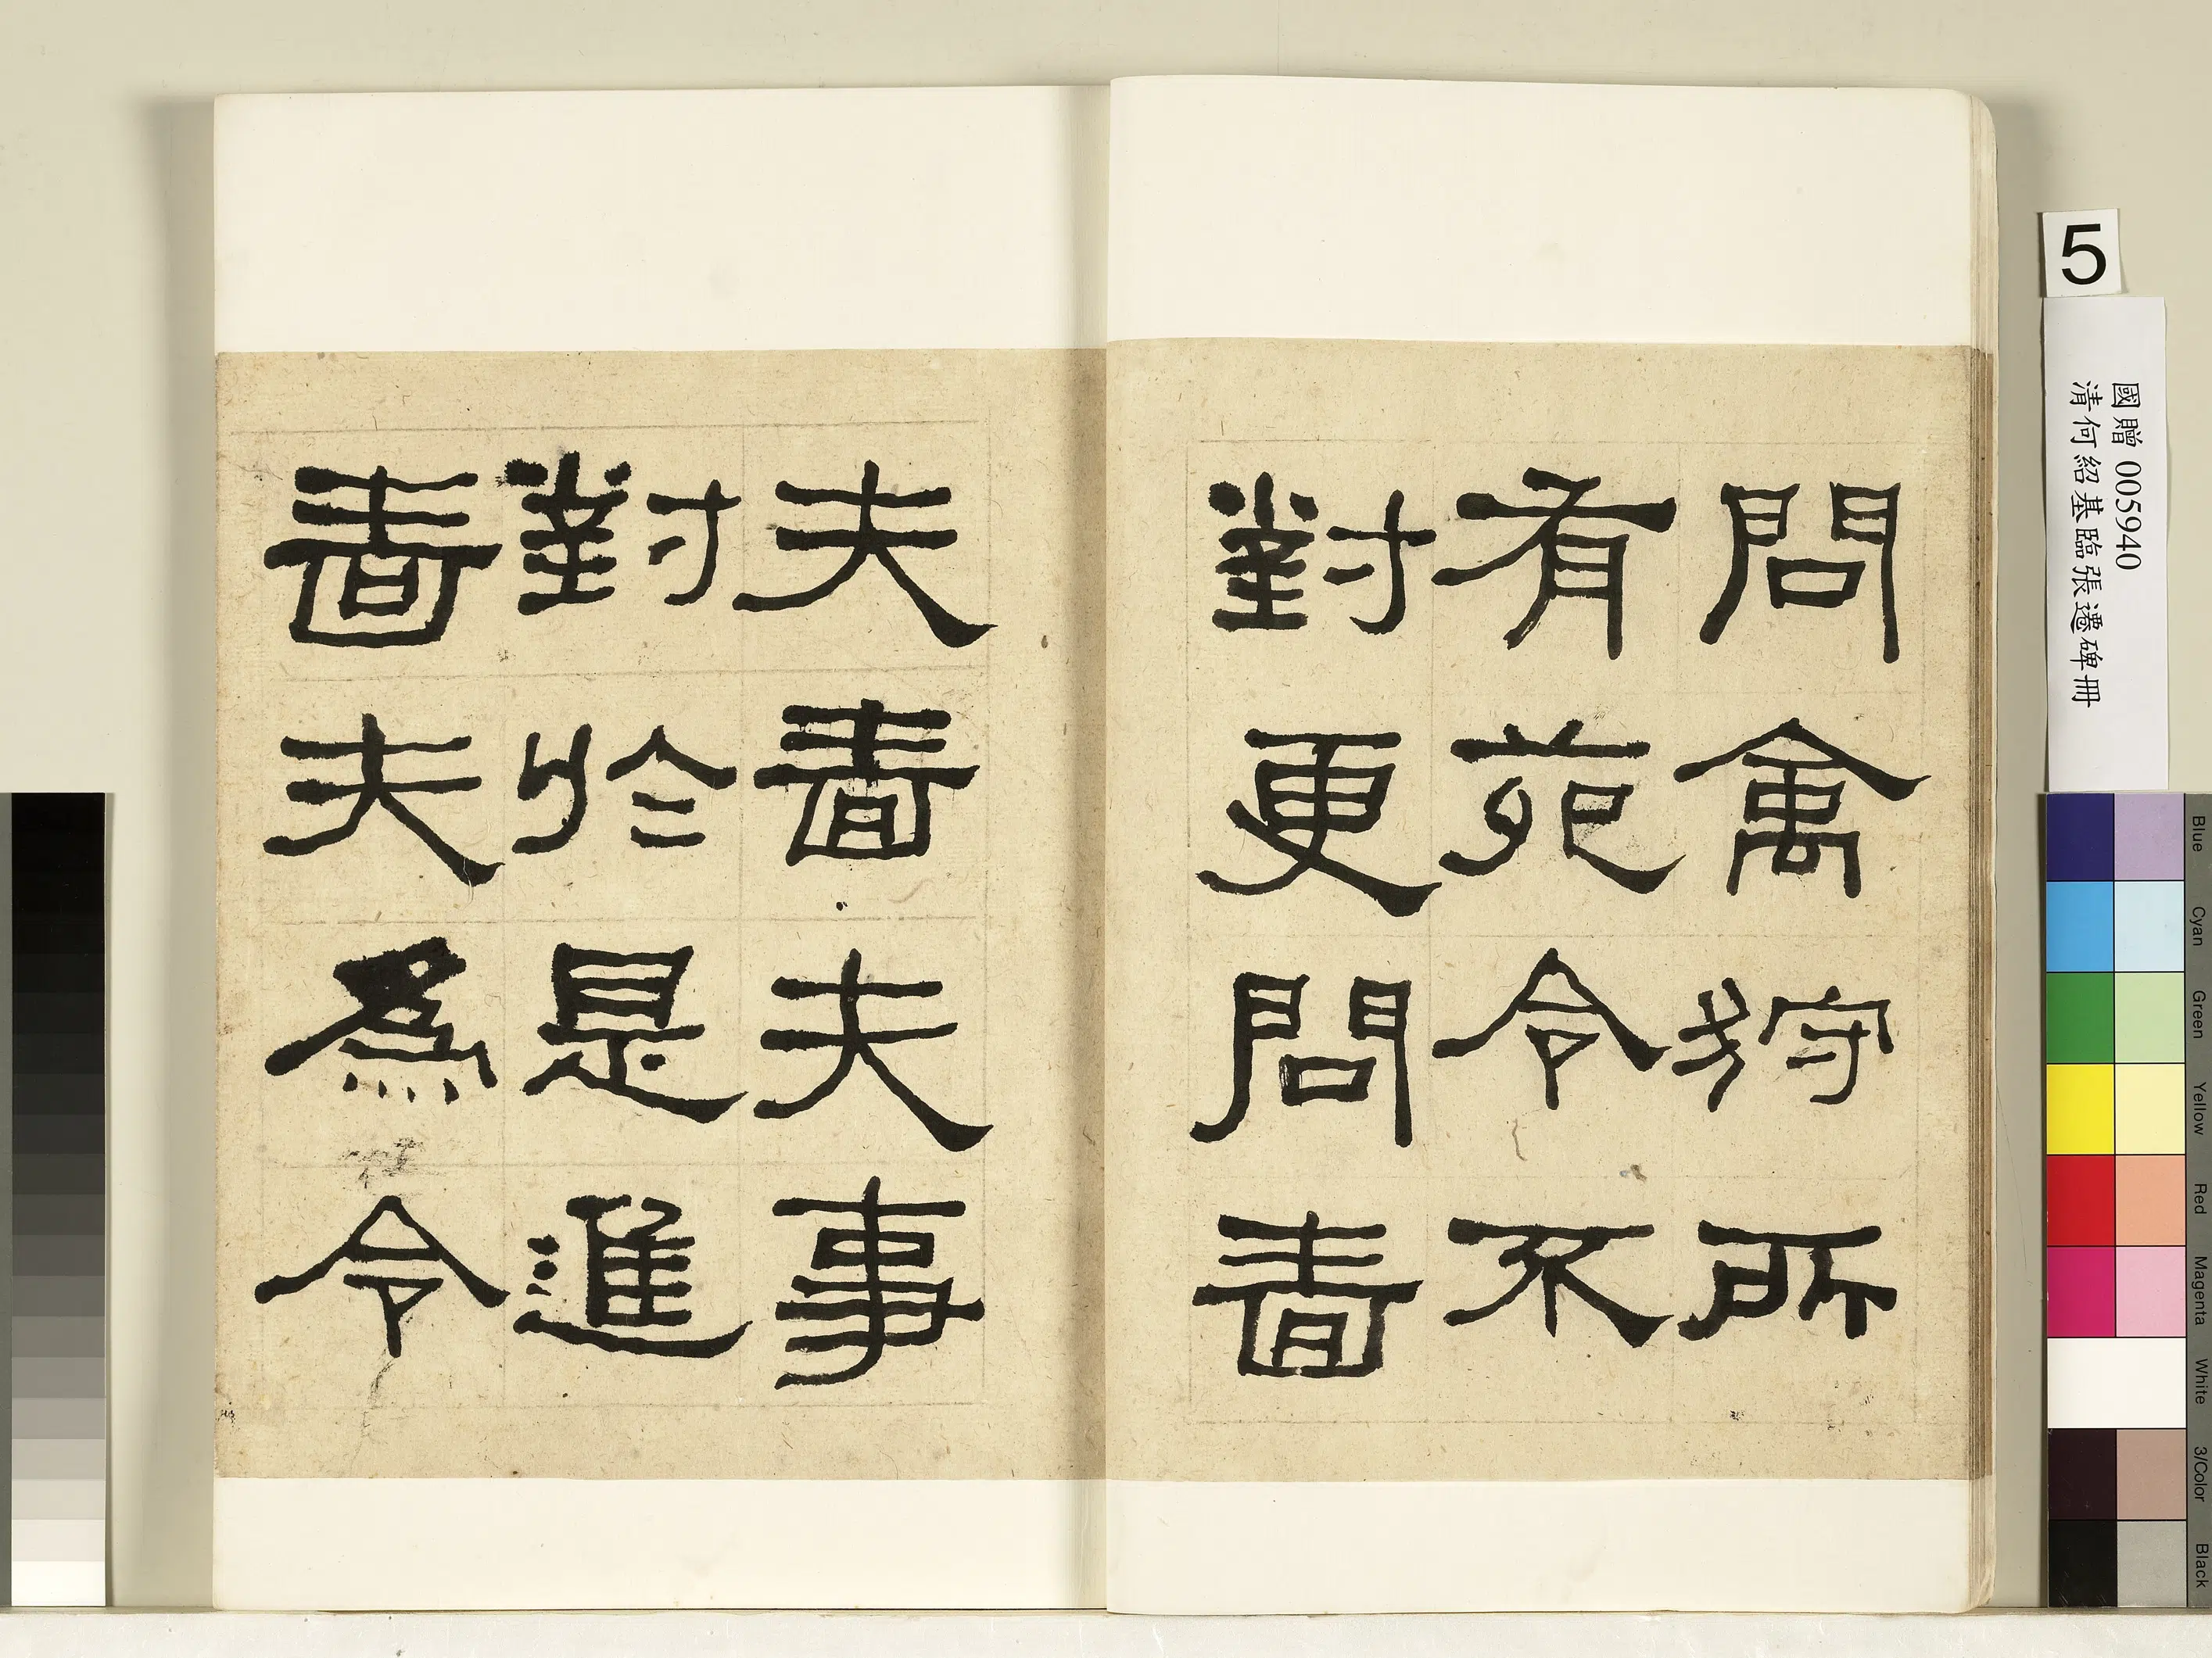 問禽狩所
有苑令不
對更問嗇
夫嗇夫事
對於是進
嗇夫為令
5
國贈 005940
清何紹基臨張遷碑冊
Blue
Cyan
Green
Yellow
Red
Magenta
White
3/Color
Black